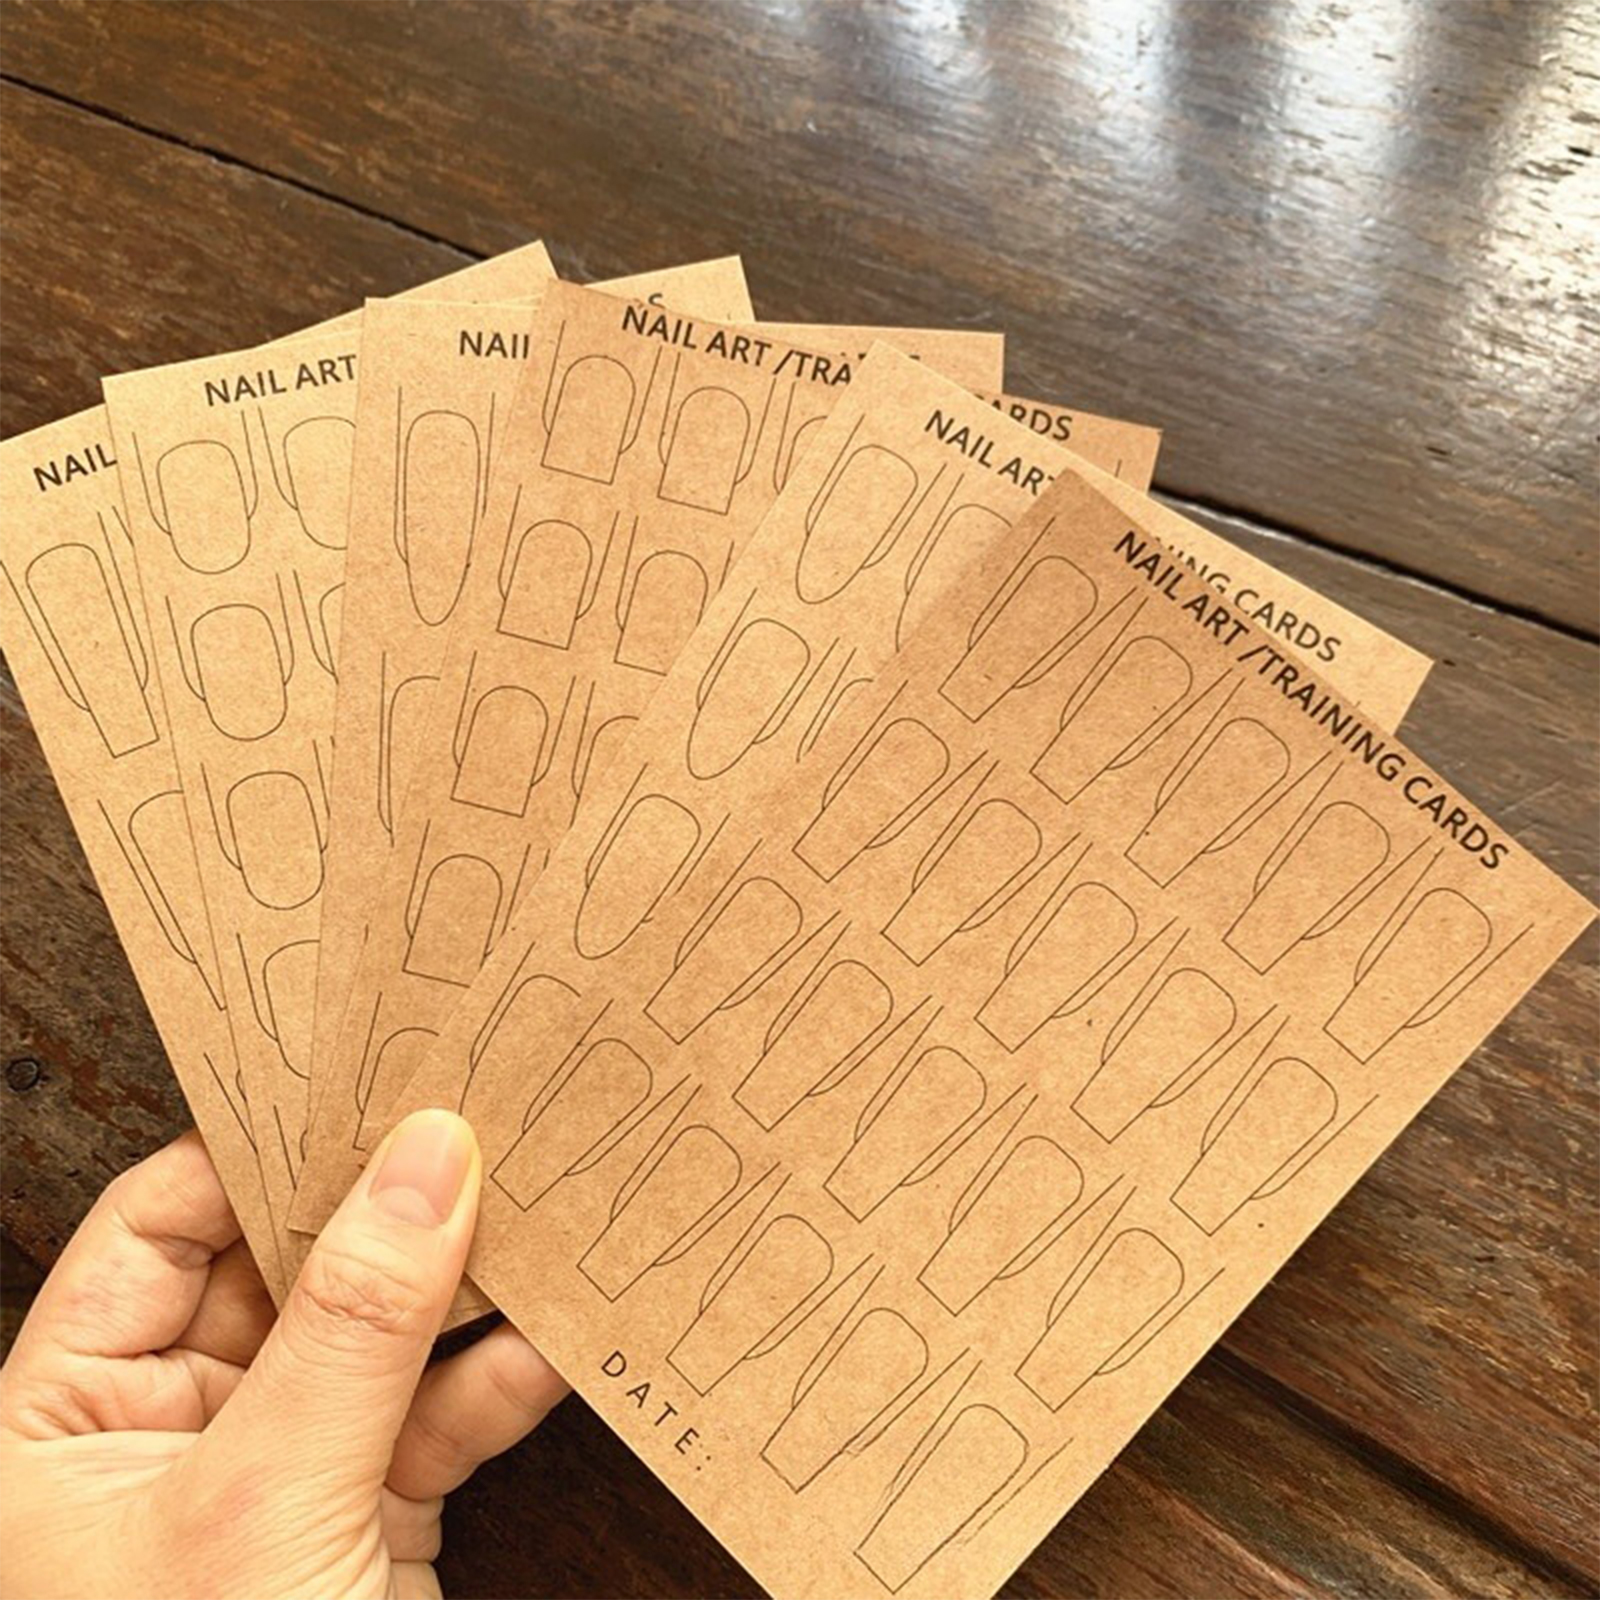 NAIL
NAIL ART
NAIL
NAIL ART /TRA
CARDS
NAIL ART
NING CARDS
NAIL ART /TRAINING CARDS
DATE: